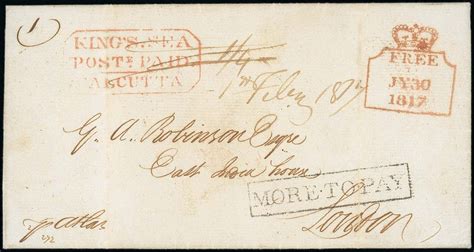 1
KING'S SEA
POSTE PAID
CALCUTTA
1/4
1st Feby 1817
FREE
JY 30
1817
G. A. Robinson Esqre
East India house
MORE-TO-PAY
London
p Atlas